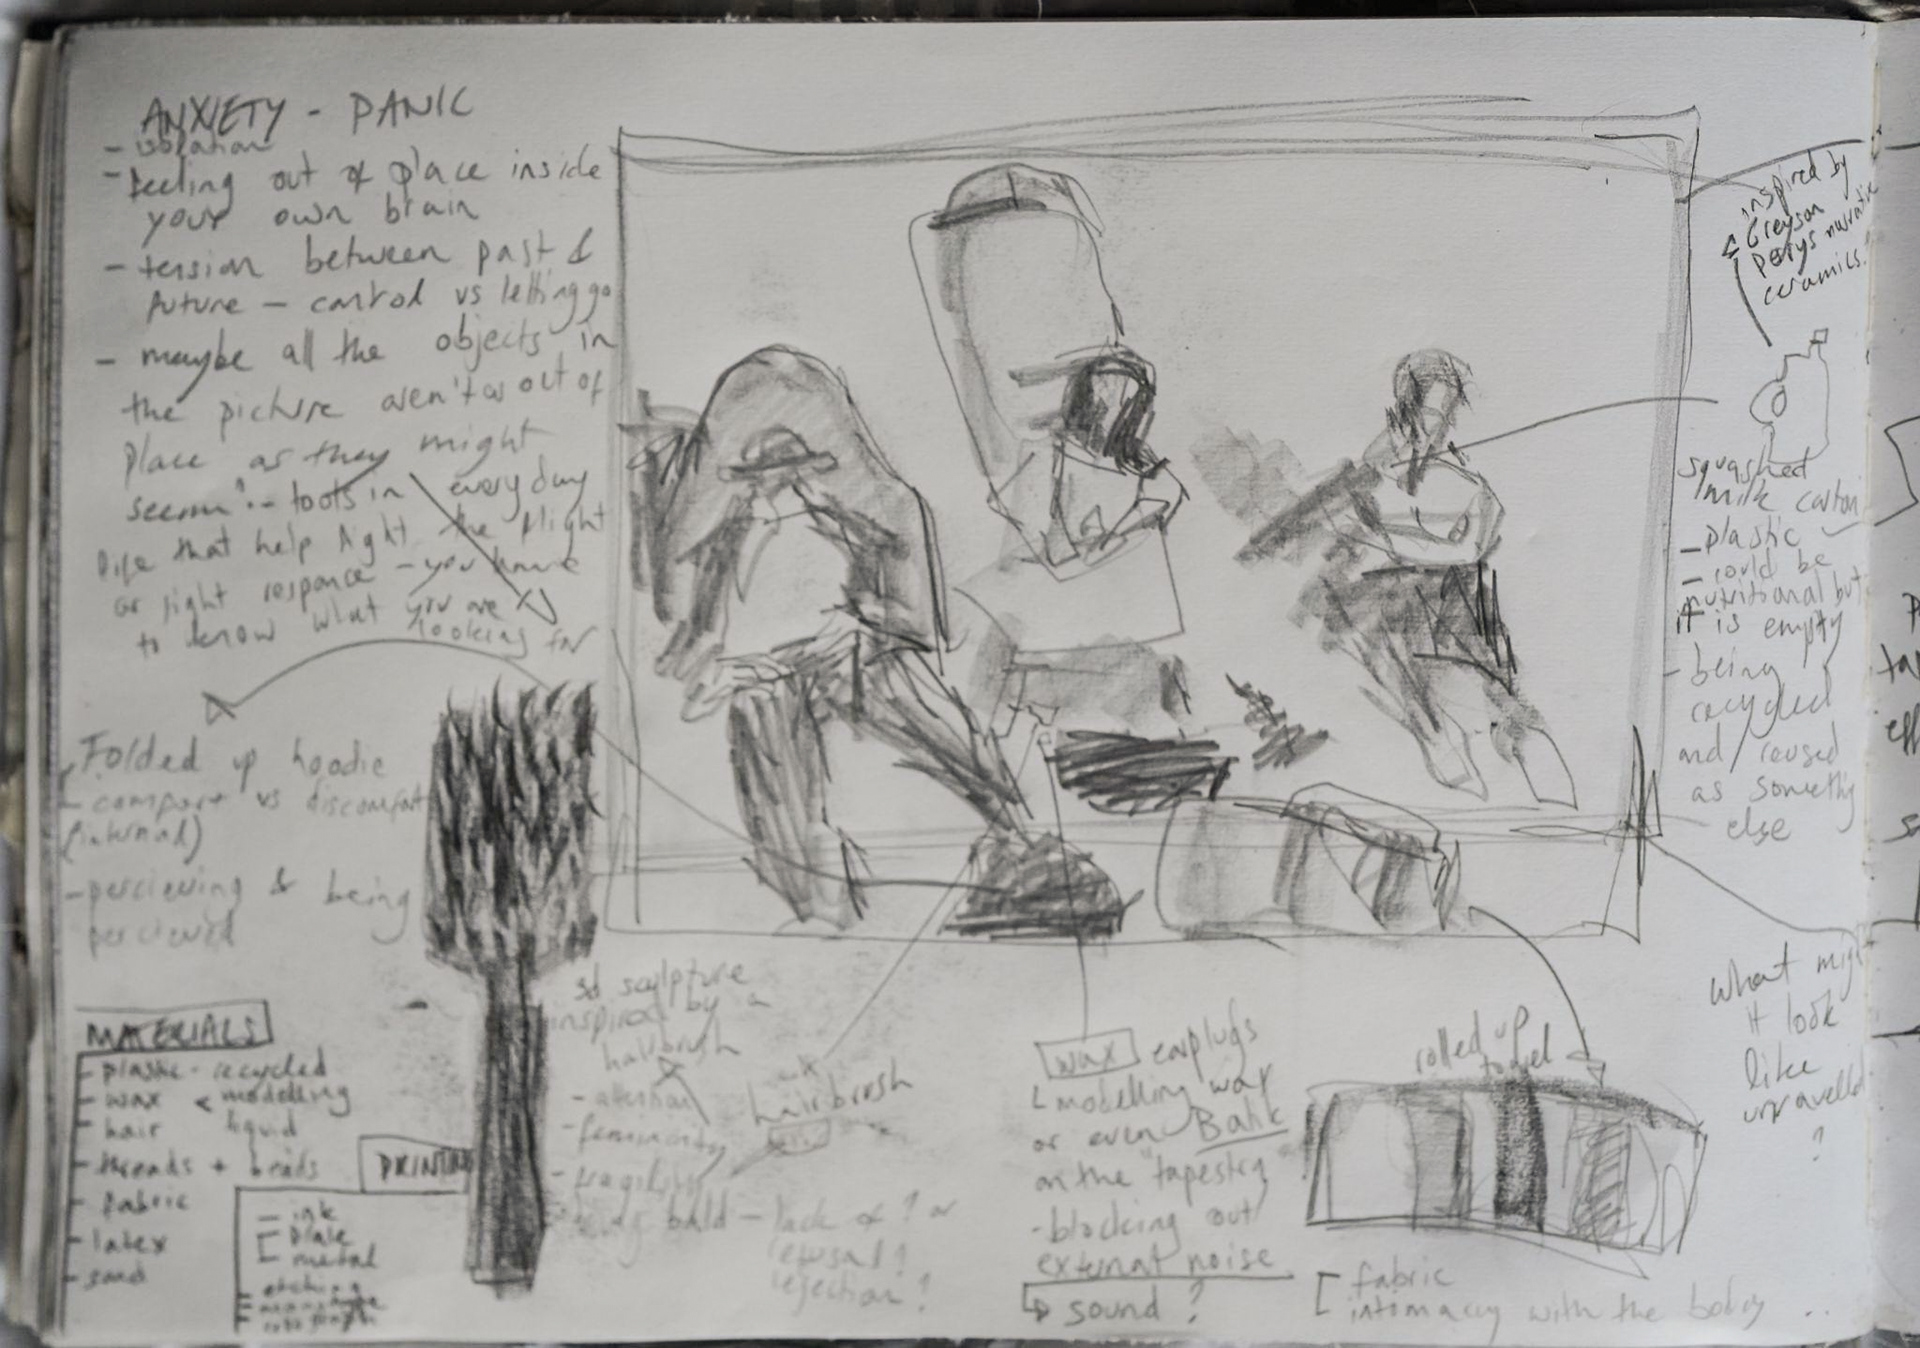 ANXIETY - PANIC
- isolation
- feeling out of place inside
your own brain
- tension between past &
future - control vs letting go
- maybe all the objects in
the picture aren't as out of
place as they might
seem? - tools in everyday
life that help fight the flight
or fight responce - you have
to know what you are
looking for
Folded up hoodie
- comfort vs discomfort
(internal)
- percieving & being
percieved
MATERIALS
- plastic - recycled
- wax < modelling
liquid
- hair
- threads + beads
- fabric
- latex
- sand
PRINTING
- ink
plate
metal
- etching
- monotype
3d sculpture
inspired by a
hairbrush
- attention
- femininity
- fragility
bald - lack of? or
refusal?
rejection?
hairbrush
wax earplugs
modelling wax
or even Batik
on the "tapestry"
- blocking out
external noise
sound?
rolled up
towel
fabric
intimacy with the body ..
inspired by
Greyson
Perys narrative
ceramics.
squashed
milk carton
- plastic
- could be
nutritional but
it is empty
- being
recycled
and reused
as something
else
What might
it look
like
unravelled
?